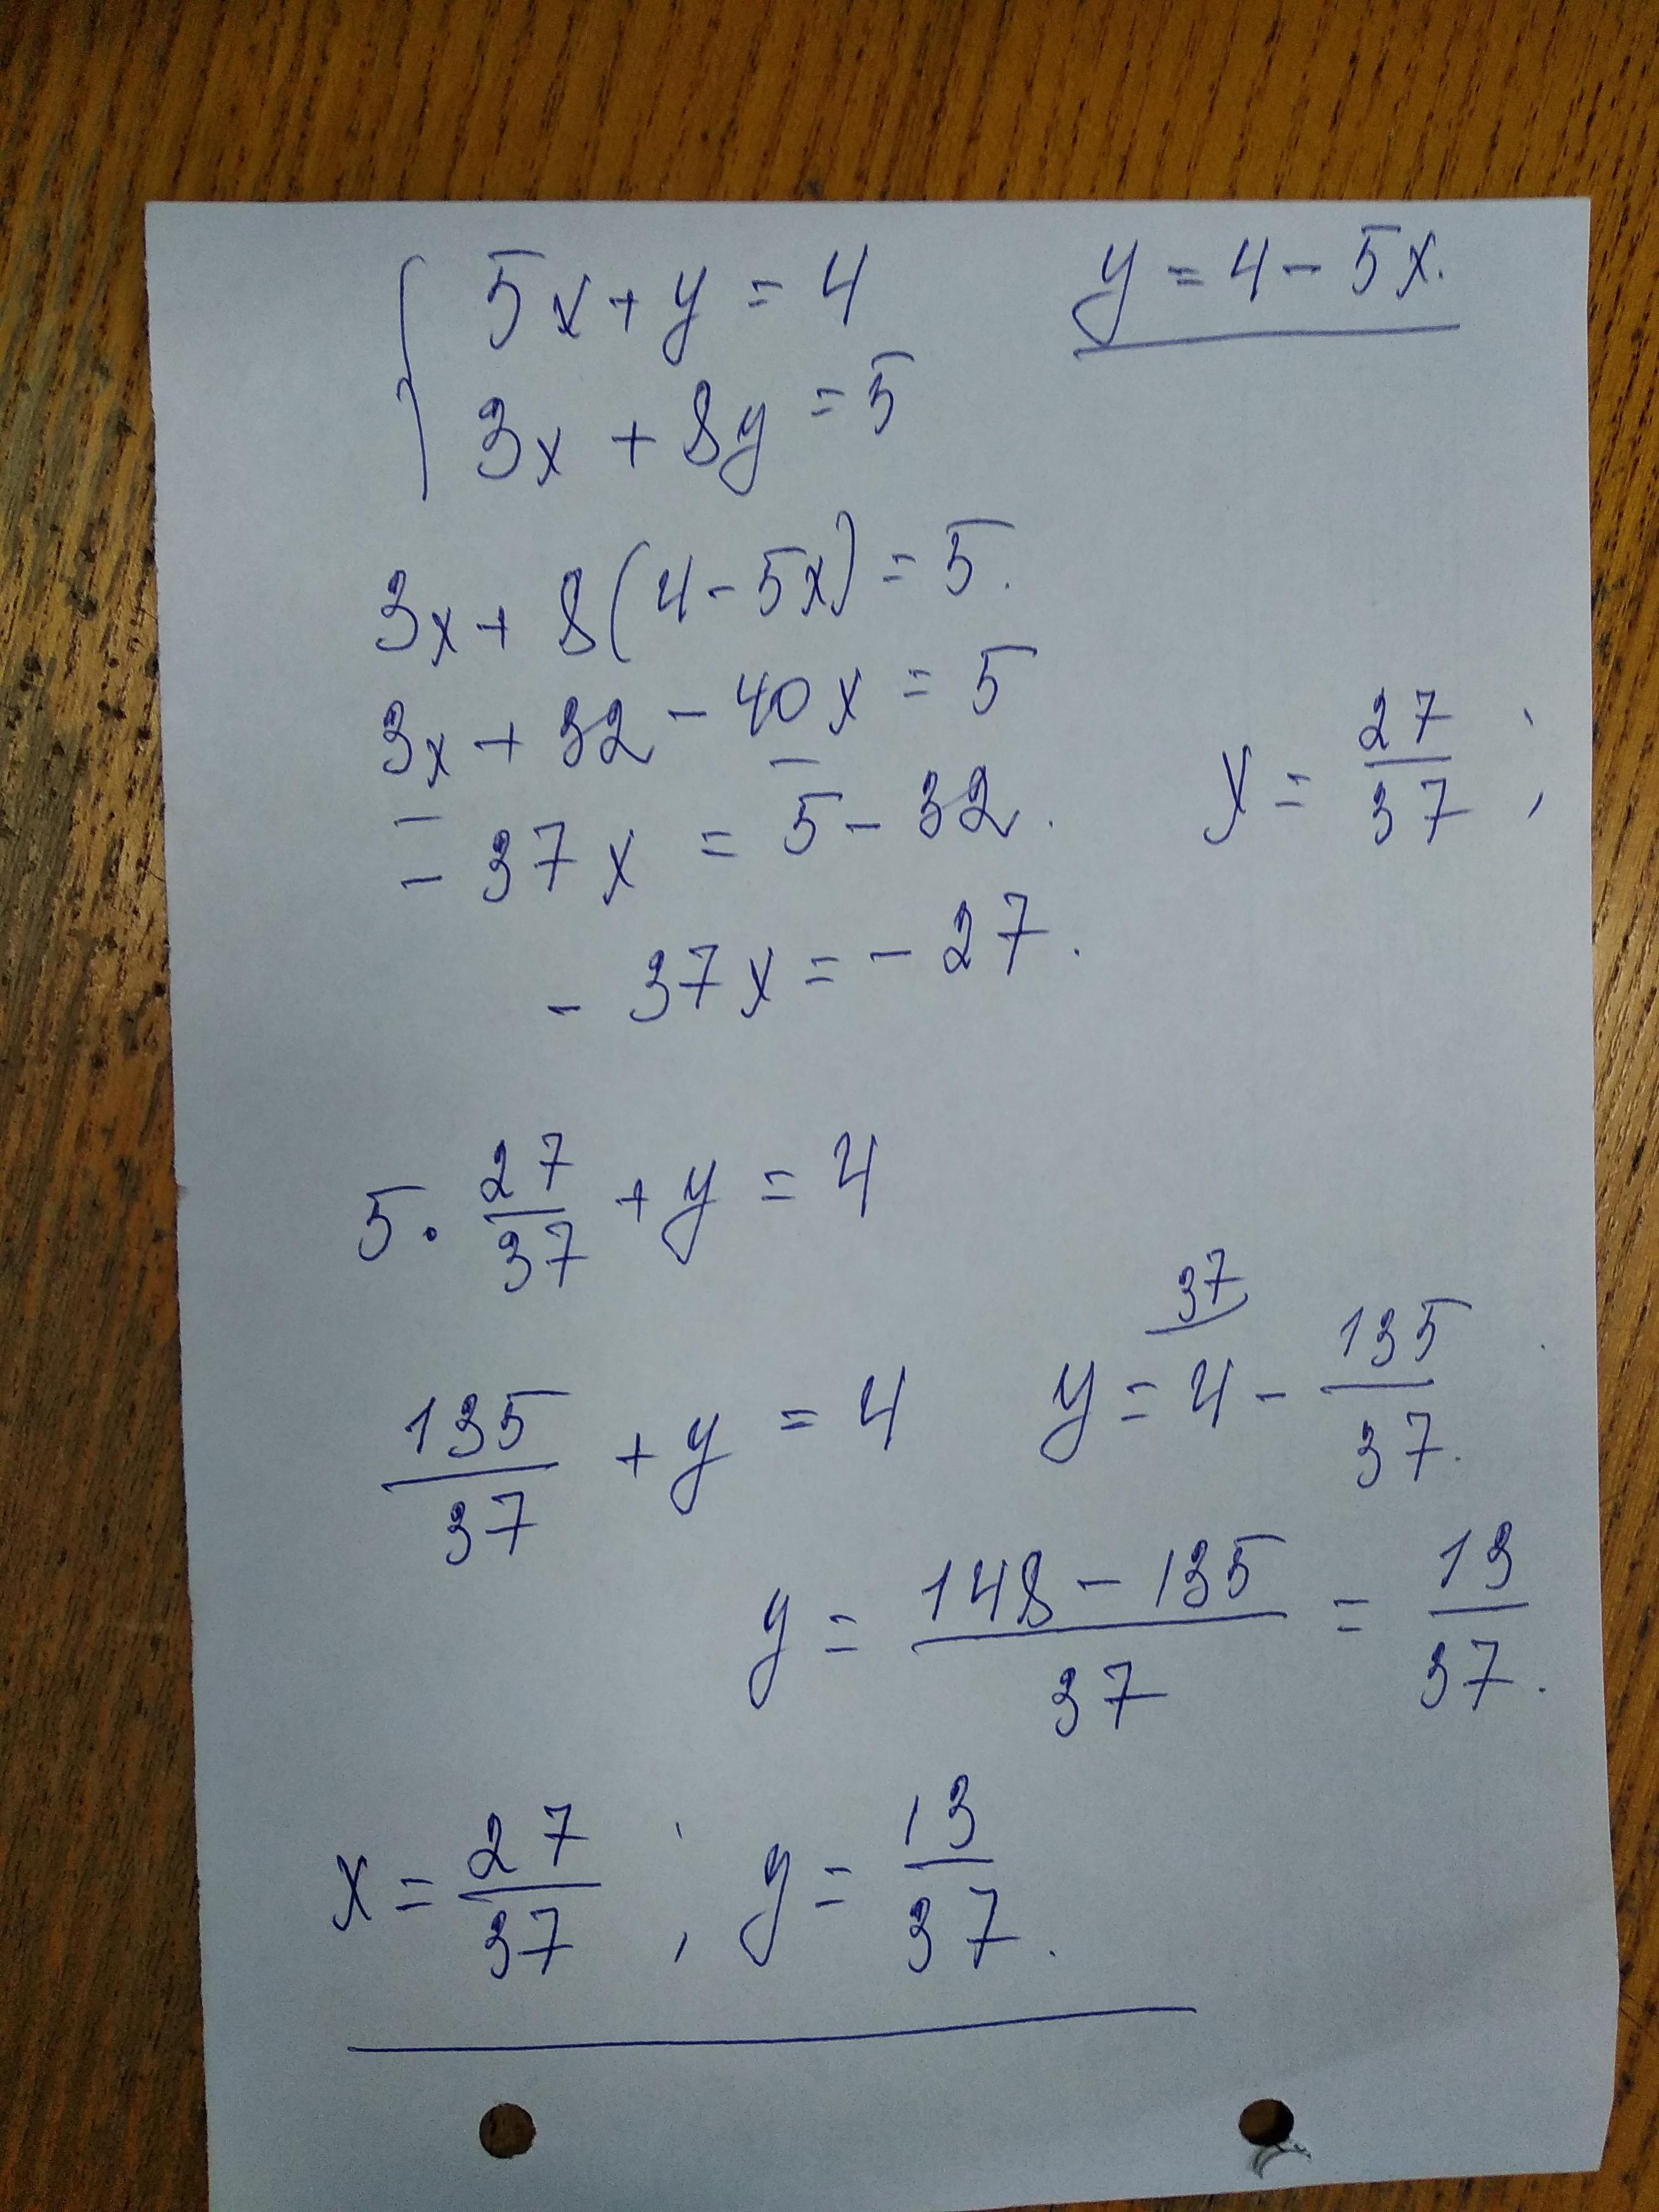 5x + y = 4    y = 4 - 5x.
3x + 8y = 5
3x + 8(4 - 5x) = 5.
3x + 32 - 40x = 5
- 37x = 5 - 32.    x = 27/37 ;
- 37x = - 27.
5 · 27/37 + y = 4
37
135/37 + y = 4    y = 4 - 135/37.
y = (148 - 135)/37 = 13/37.
x = 27/37 ; y = 13/37.